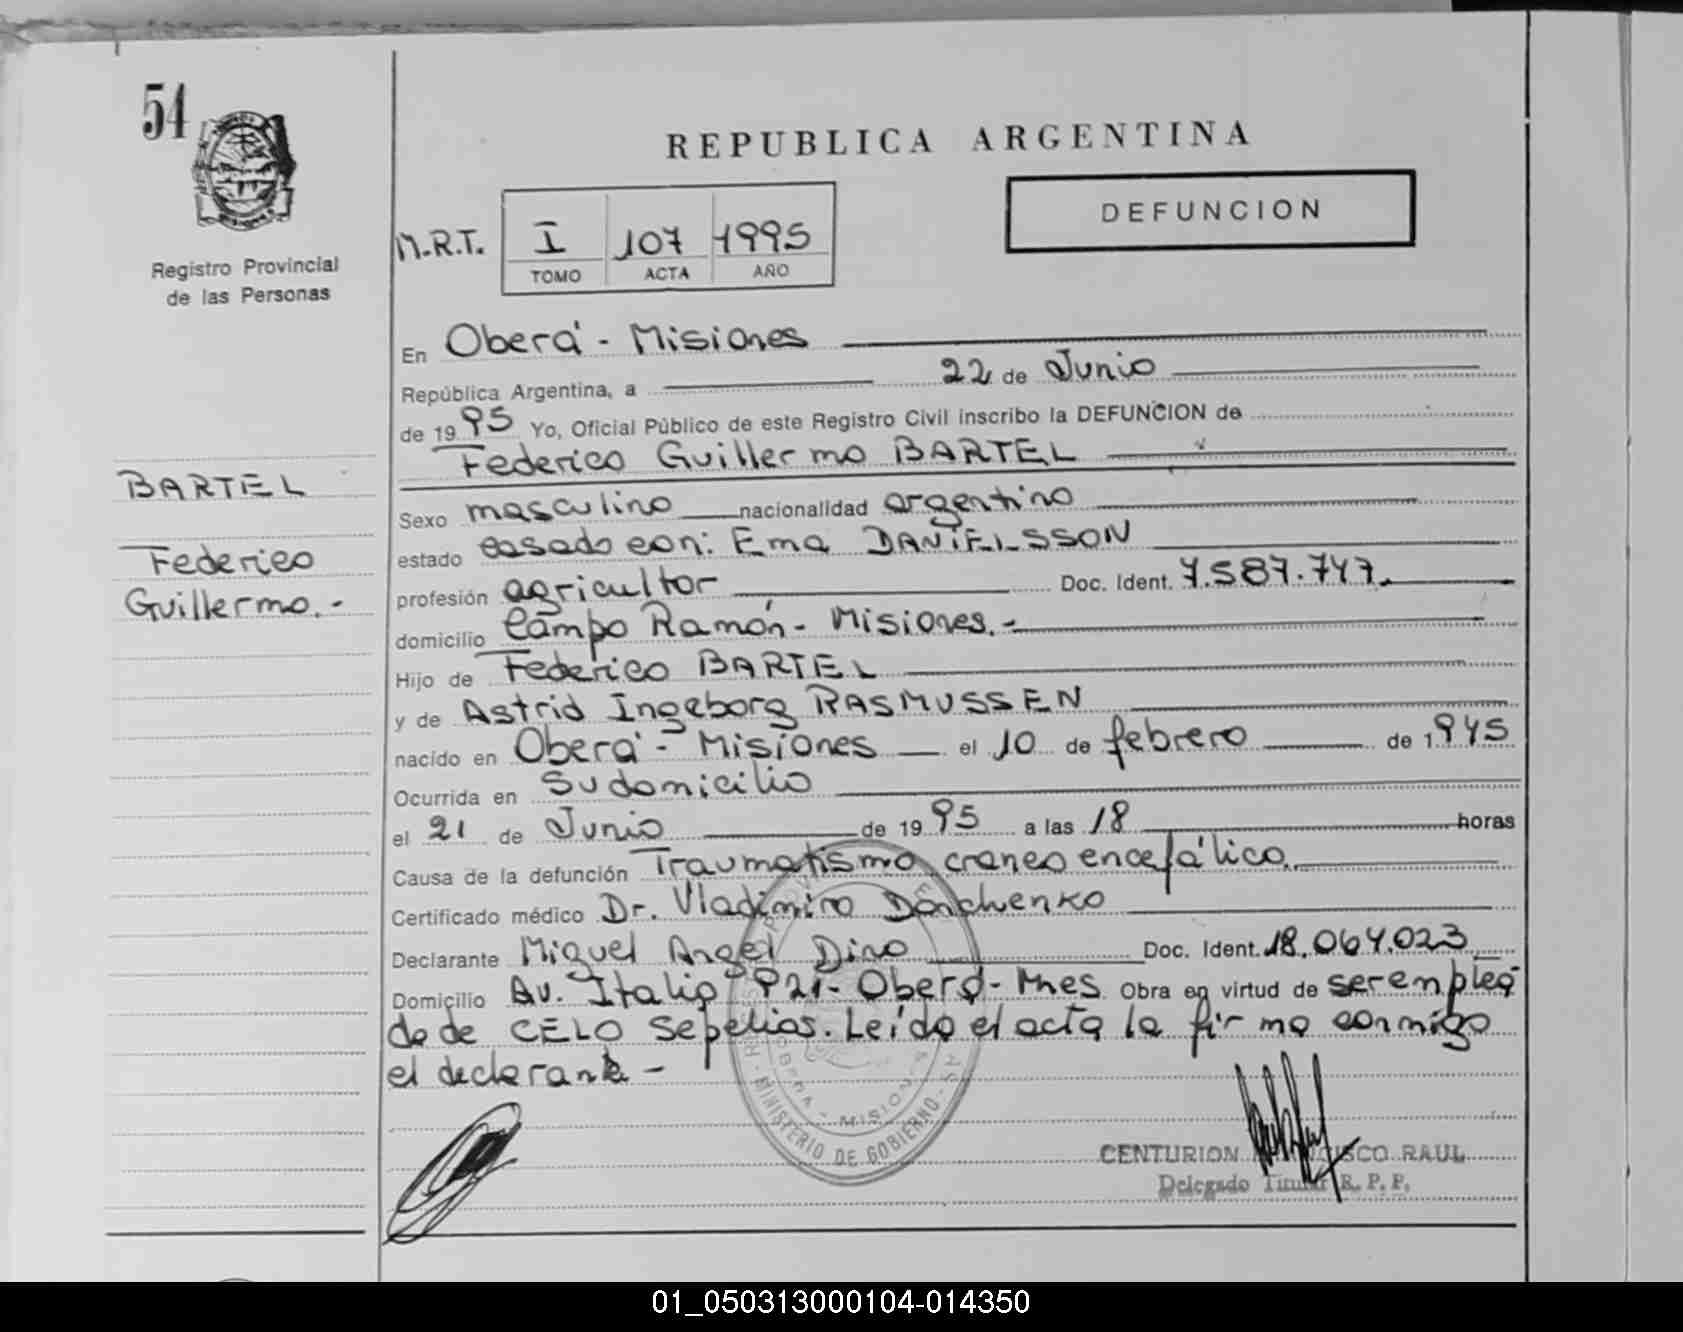 54
REPUBLICA ARGENTINA
DEFUNCION
M.R.T. I 107 1995
TOMO ACTA AÑO
Registro Provincial
de las Personas
En Oberá - Misiones
República Argentina, a 22 de Junio
de 1995 Yo, Oficial Público de este Registro Civil inscribo la DEFUNCION de
Federico Guillermo BARTEL
BARTEL
Federico
Guillermo.-
Sexo masculino nacionalidad argentino
estado casado con: Ema DANIELSSON
profesión agricultor Doc. Ident. 7.587.747.
domicilio Campo Ramón - Misiones.-
Hijo de Federico BARTEL
y de Astrid Ingeborg RASMUSSEN
nacido en Oberá - Misiones el 10 de febrero de 1945
Ocurrida en Su domicilio
el 21 de Junio de 1995 a las 18 horas
Causa de la defunción Traumatismo craneo encefálico.
Certificado médico Dr. Vladimiro Donchenko
Declarante Miguel Angel Dino Doc. Ident. 18.064.023
Domicilio Av. Italia 921 - Oberá - Mnes Obra en virtud de ser emplea
do de CELO Sepelios. Leído el acta la firma conmigo
el declarante -
MINISTERIO DE GOBIERNO
OBERA - MISIONES
CENTURION FRANCISCO RAUL
Delegado Titular R. P. P.
01_050313000104-014350